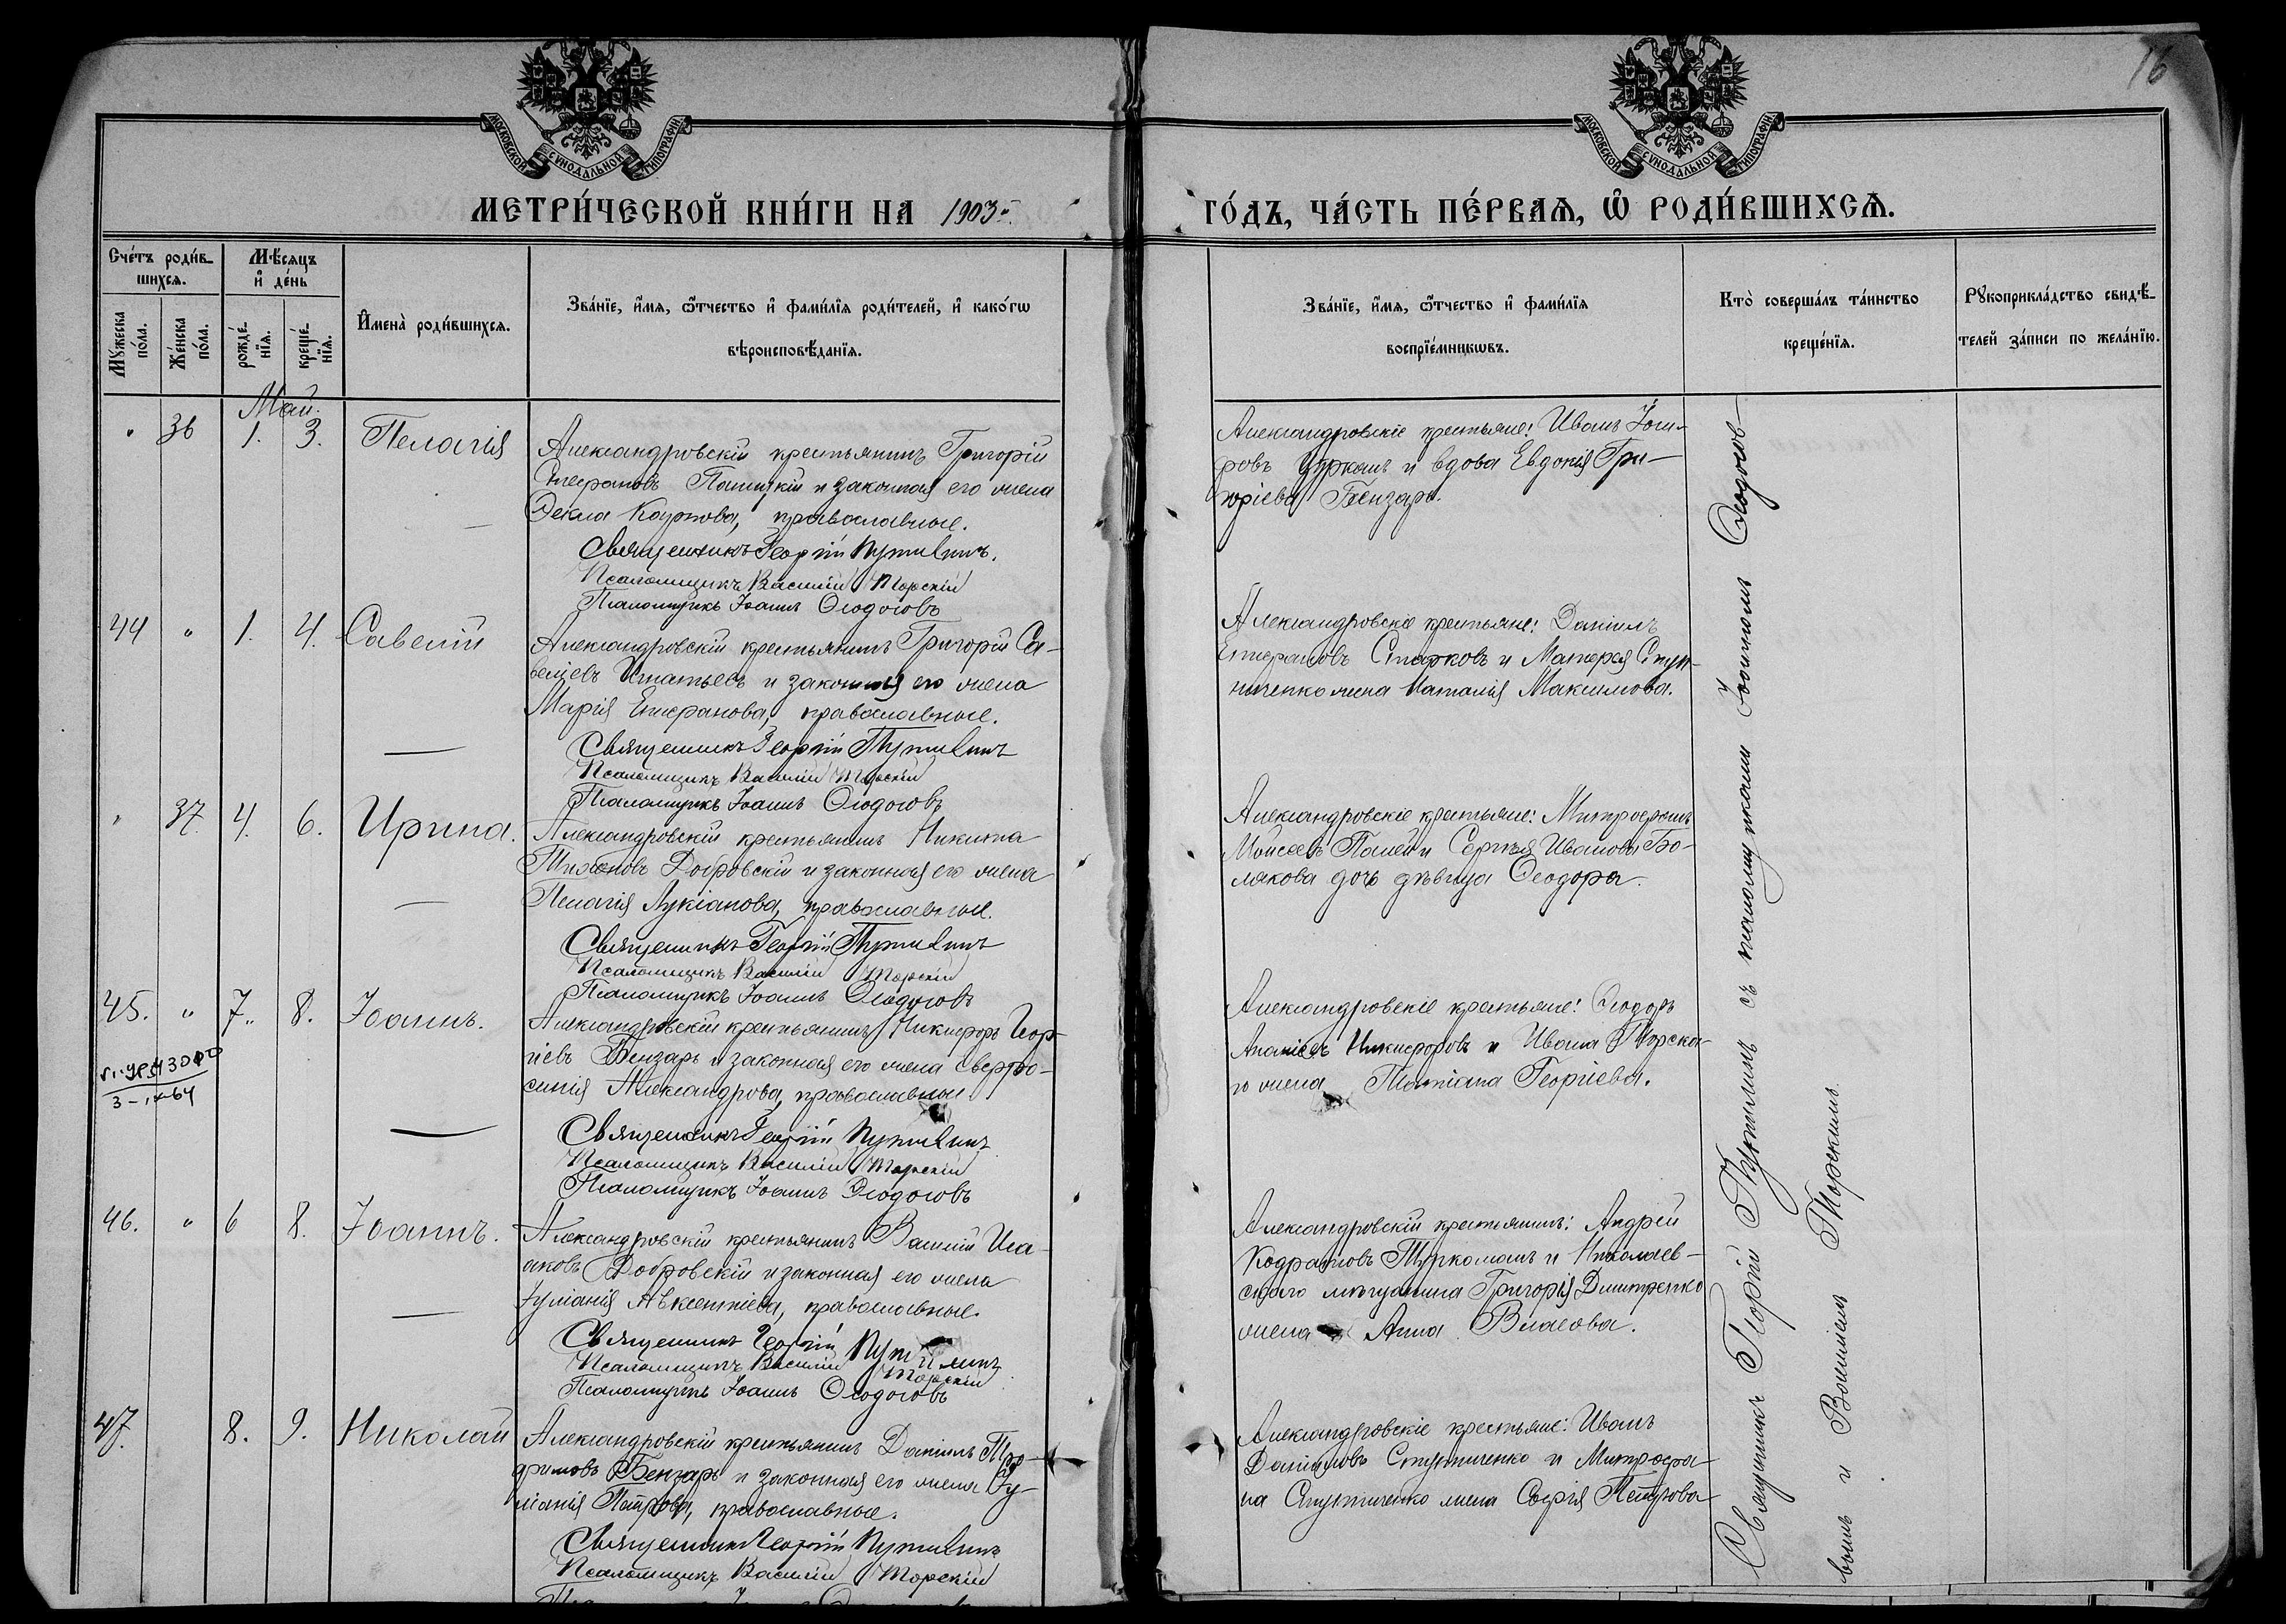 16
МОСКОВСКОЙ СѴНОДАЛЬНОЙ ТИПОГРАФІИ
МОСКОВСКОЙ СѴНОДАЛЬНОЙ ТИПОГРАФІИ
МЕТРИ́ЧЕСКОЙ КНИ́ГИ НА 1903й
ГО́ДЪ, ЧА́СТЬ ПЕ́РВАѦ, Ѡ҆ РОДИ́ВШИХСѦ.
Сче́тъ роди́в-
шихсѧ.
Мѣ́сѧцъ
и҆ де́нь
Мꙋ́жеска
по́ла.
Же́нска
по́ла.
рожде́-
нїѧ.
креще́-
нїѧ.
И҆мена̀ роди́вшихсѧ.
Зва́нїе, и҆́мѧ, ѻ҆́тчество и҆ фами́лїѧ роди́телей, и҆ како́гѡ
вѣроисповѣ́данїѧ.
Зва́нїе, и҆́мѧ, ѻ҆́тчество и҆ фами́лїѧ
воспрїе́мникѡвъ.
Кто̀ соверша́лъ та́инство
креще́нїѧ.
Рꙋкоприкла́дство свидѣ́-
телей за́писи по жела́нїю.
Май.
" 36 1. 3. Пелагія
Александровскій крестьянинъ Григорій
Стефановъ и законная его жена
Ѳекла Карпова, православные.
Священникъ Георгій Путилинъ.
Псаломщикъ Василій Торскій
Псаломщикъ Іоаннъ Ѳеодосовъ
Александровскіе крестьяне: Иванъ
и вдова Евдокія Гри-
горіева Бензарь.
44 " 1. 4. Савелій
Александровскій крестьянинъ Григорій Са-
веліевъ Игнатьевъ и законная его жена
Марія Епифанова, православные.
Священникъ Георгій Путилинъ
Псаломщикъ Василій Торскій
Псаломщикъ Іоаннъ Ѳеодосовъ
Александровскіе крестьяне: Даніилъ
Епифановъ Старковъ и
жена Наталія Максимова.
" 37. 4. 6. Ирина.
Александровскій крестьянинъ Никита
Тихоновъ Добровскій и законная его жена
Пелагія Лукіанова, православные.
Священникъ Георгій Путилинъ
Псаломщикъ Василій Торскій
Псаломщикъ Іоаннъ Ѳеодосовъ
Александровскіе крестьяне: Митрофанъ
Моисеевъ и Сергѣя Иванова Бо-
лякова дочь дѣвица Ѳеодора.
45. " 7. 8. Іоаннъ.
Александровскій крестьянинъ Никифоръ Геор-
гіевъ Бензарь и законная его жена Евфро-
синія Александрова, православные.
Священникъ Георгій Путилинъ
Псаломщикъ Василій Торскій
Псаломщикъ Іоаннъ Ѳеодосовъ
Александровскіе крестьяне: Ѳеодоръ
Никифоровъ и Ивана Торска-
го жена Татіана Георгіева.
46. " 6 8. Іоаннъ.
Александровскій крестьянинъ Василій Иса-
аковъ Добровскій и законная его жена
Іуліанія Авксентіева, православные.
Священникъ Георгій Путилинъ
Псаломщикъ Василій Торскій
Псаломщикъ Іоаннъ Ѳеодосовъ
Александровскій крестьянинъ: Андрей
Кодратовъ Туркоманъ и Николаев-
скаго мѣщанина Григорія Дмитренко
жена Анна Власова.
47. 8. 9. Николай
Александровскій крестьянинъ Даніилъ Тро-
фимовъ Бензарь и законная его жена Іу-
ліанія Петрова, православные.
Священникъ Георгій Путилинъ
Псаломщикъ Василій Торскій
Александровскіе крестьяне: Иванъ
Даніиловъ Ступниченко и Митрофа-
на Ступниченко жена Софія Петрова
Священникъ Георгій Путилинъ съ псаломщиками Іоанномъ Ѳеодосо-
вымъ и Василіемъ Торскимъ